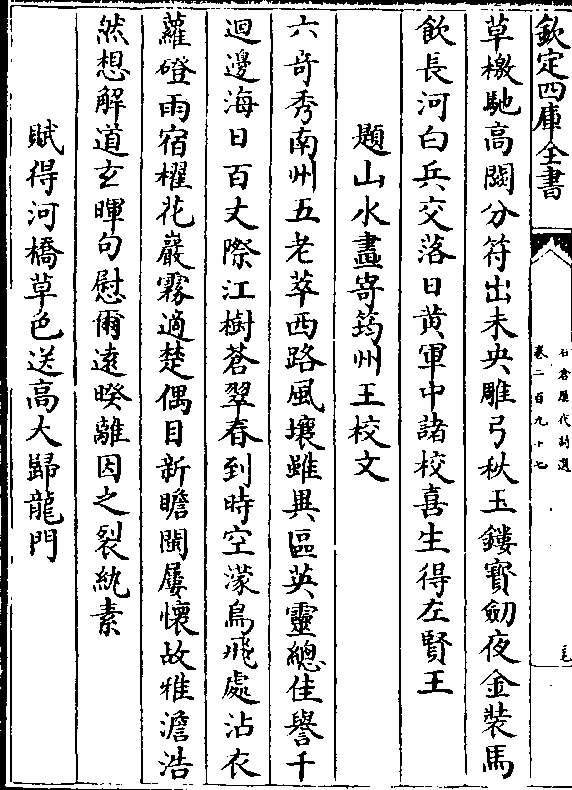 欽定四庫全書
石倉歷代詩選
卷二百九十七
草檄馳高闕分符出未央雕弓秋玉鏤寶劒夜金裝馬
飲長河白兵交落日黄軍中諸校喜生得左賢王
題山水畫寄筠州王校文
六奇秀南州五老萃西路風壤雖異區英靈總佳譽千
迴邊海日百丈際江樹蒼翠春到時空濛鳥飛處沾衣
蘿磴雨宿櫂花巖霧適楚偶目新瞻閩屢懷故雅澹浩
然想解道玄暉句慰爾遠暌離因之裂紈素
賦得河橋草色送高大歸龍門